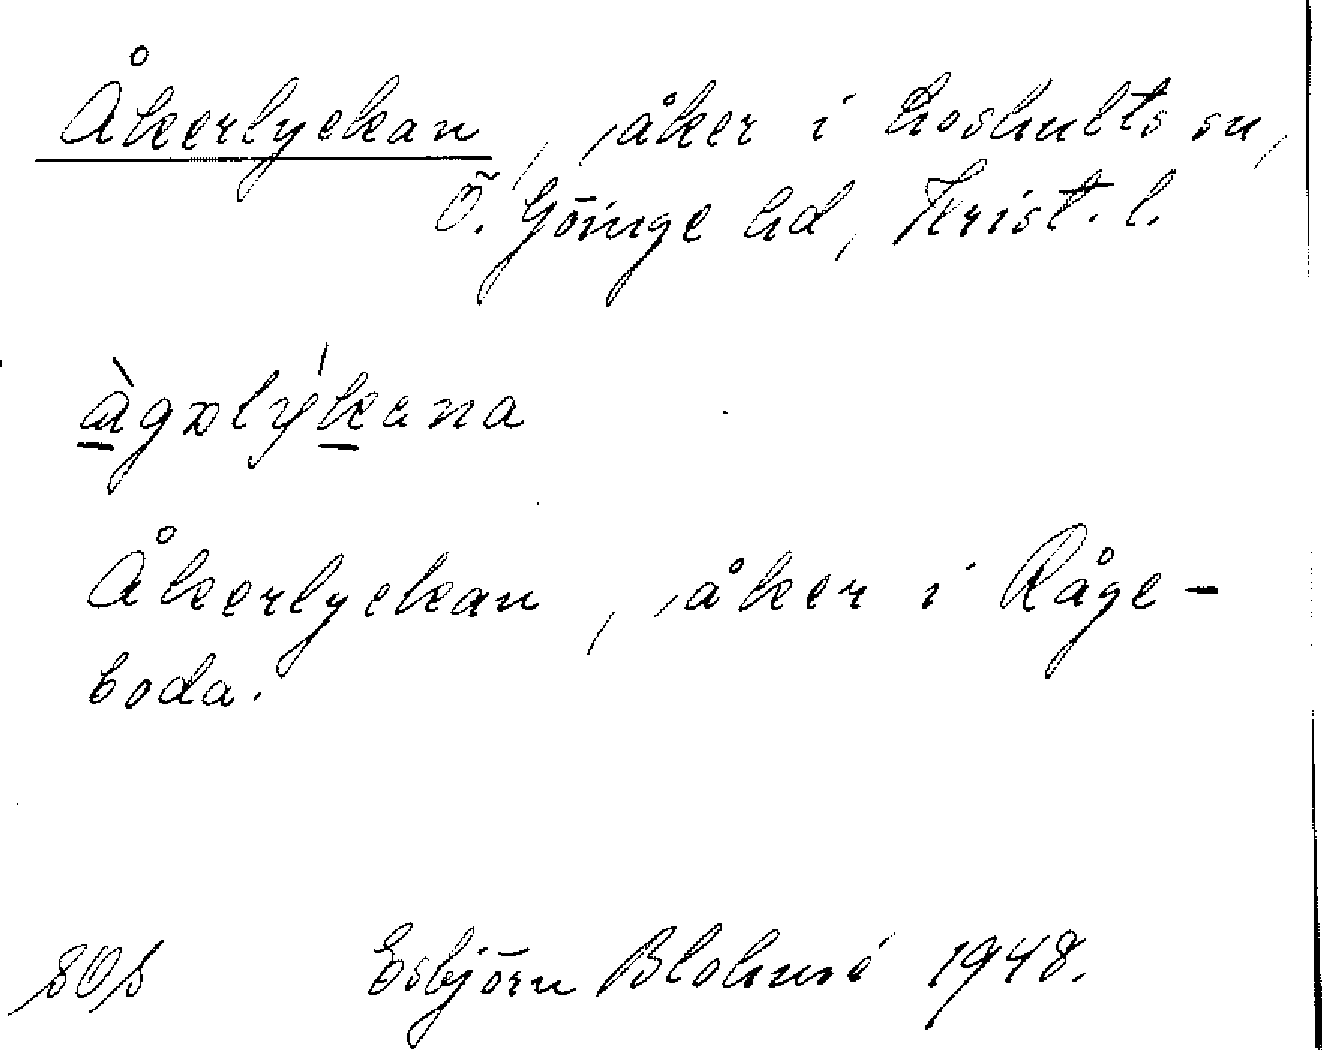 Åkerlyckan, åker i Loshults sn,
Ö. Göinge hd, Krist. l.
Åkerlyckan, åker i Råge-
boda.
Esbjörn Blohmé 1948.